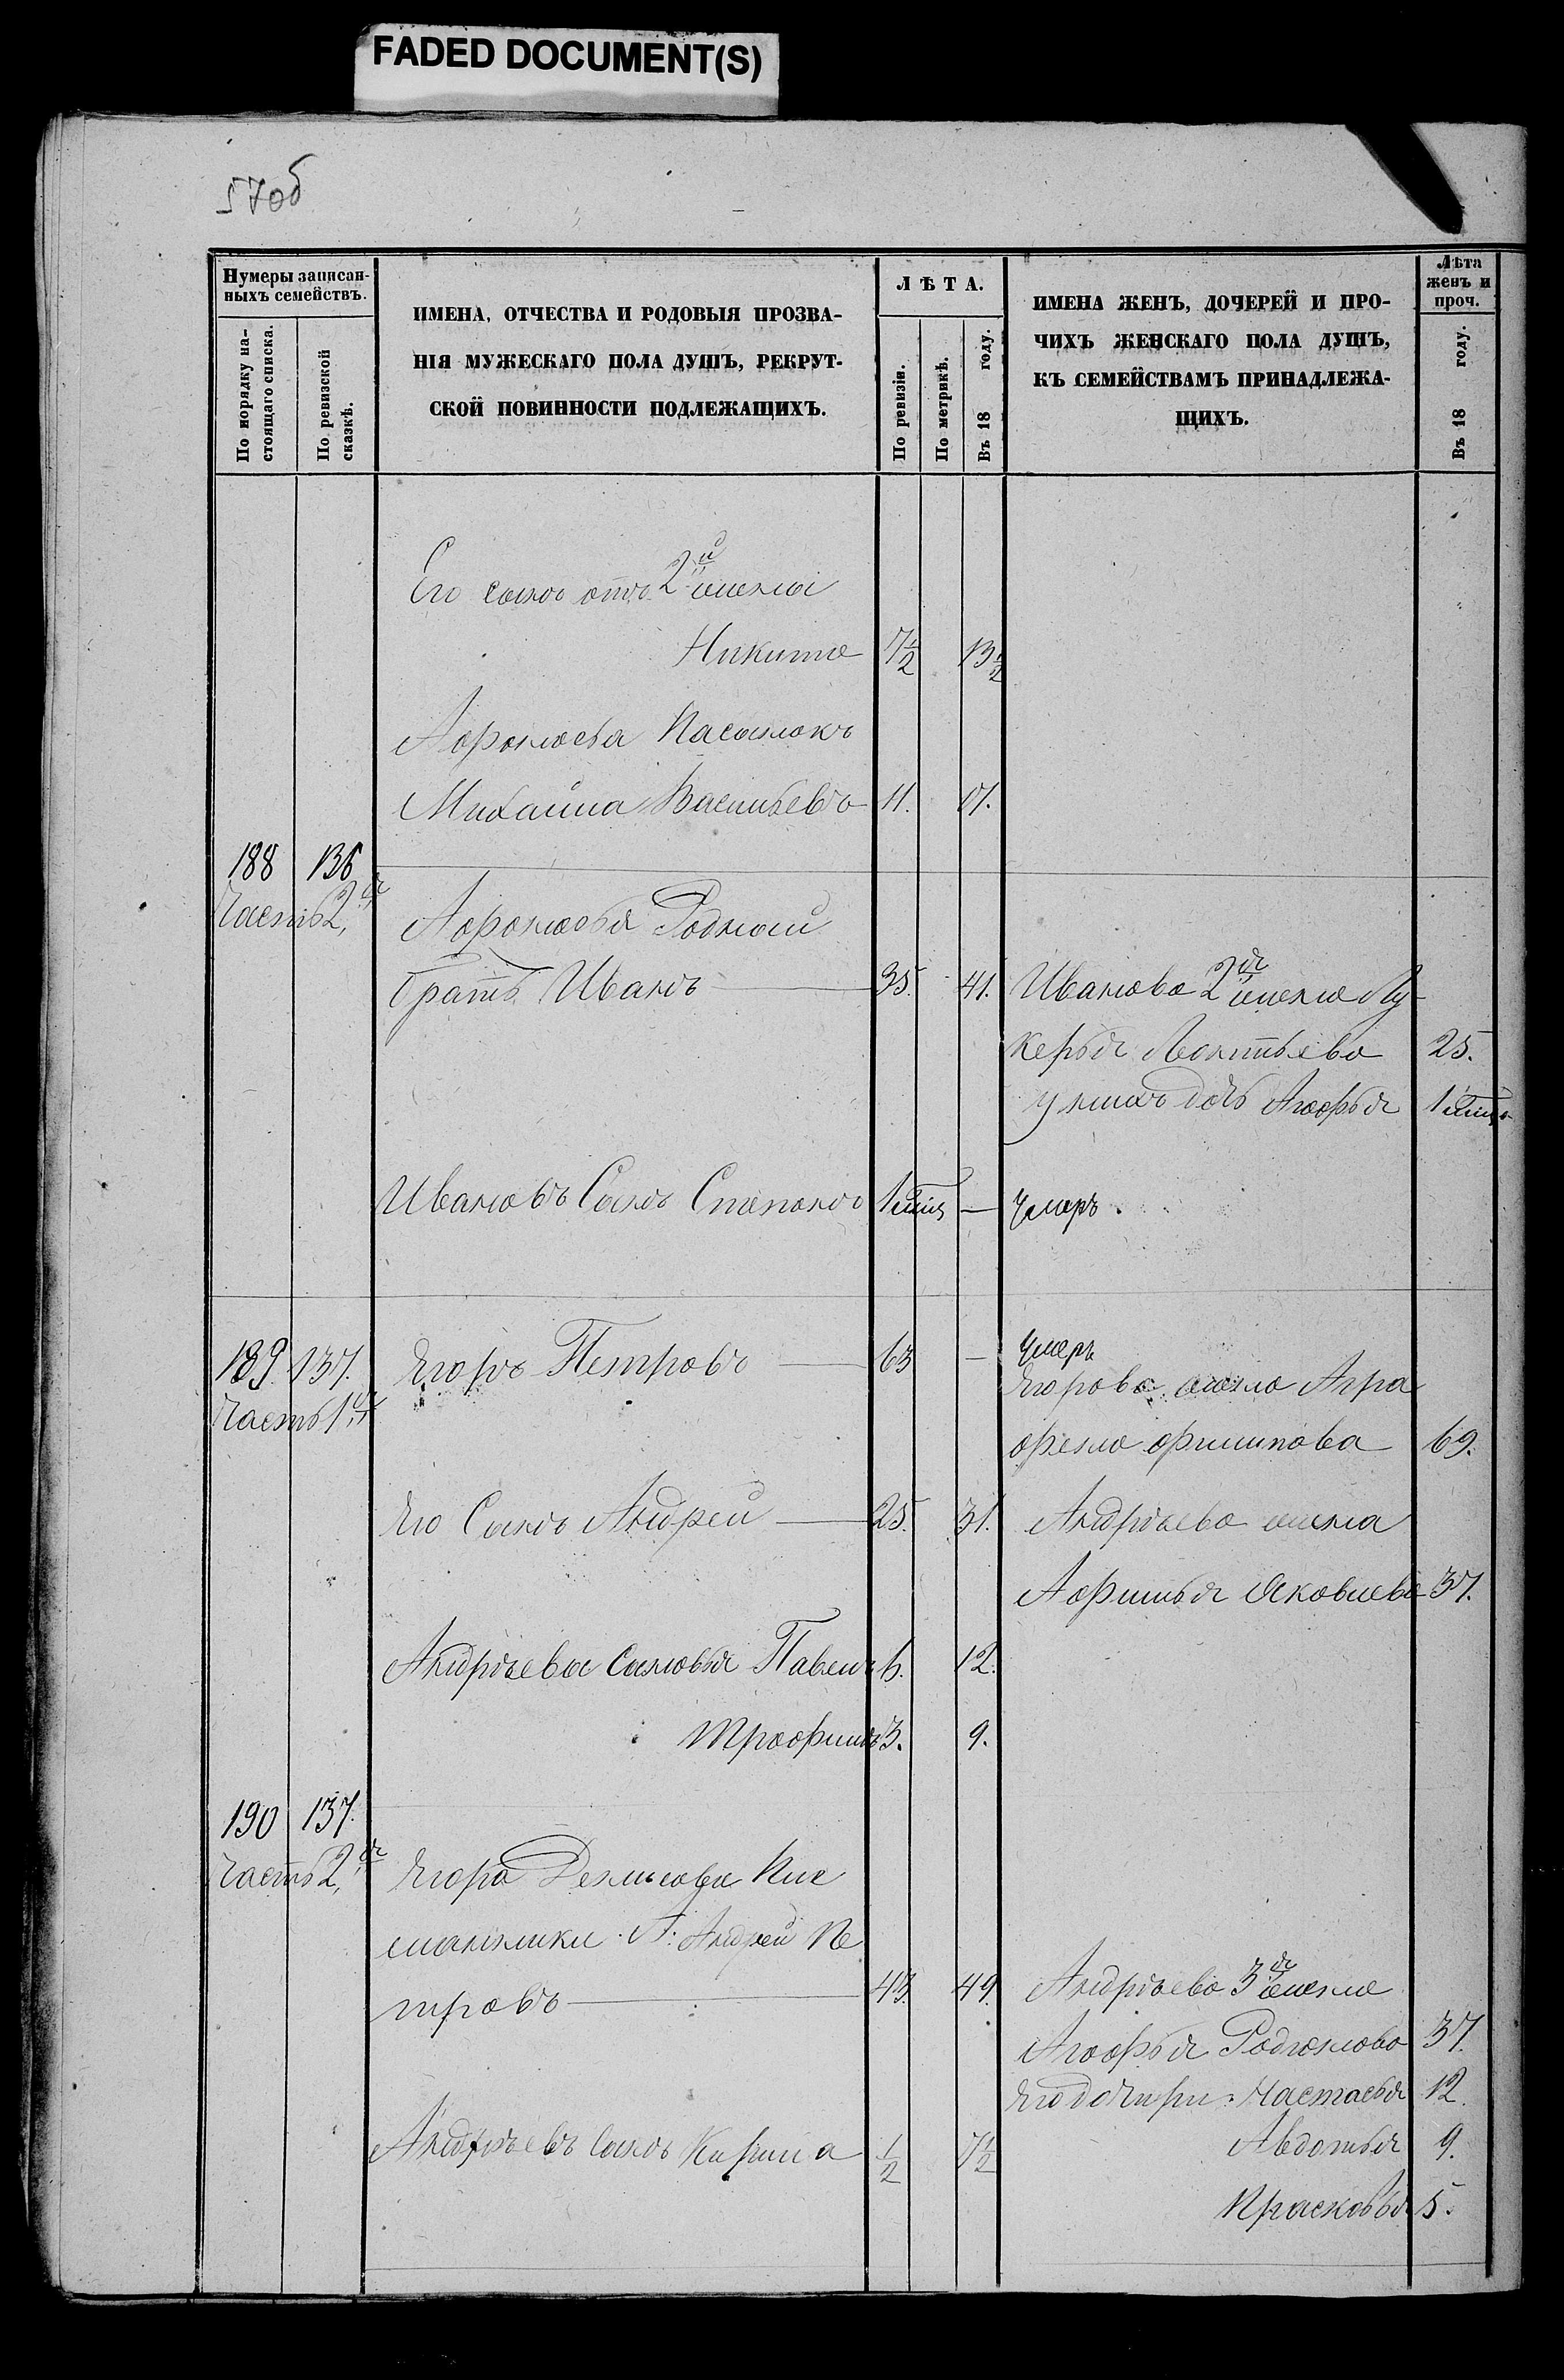 FADED DOCUMENT(S)
57об
Нумеры записан-
ныхъ семействъ.
По порядку на-
стоящаго списка.
По ревизской
сказкѣ.
ИМЕНА, ОТЧЕСТВА И РОДОВЫЯ ПРОЗВА-
НІЯ МУЖЕСКАГО ПОЛА ДУШЪ, РЕКРУТ-
СКОЙ ПОВИННОСТИ ПОДЛЕЖАЩИХЪ.
ЛѢТА.
По ревизіи.
По метрикѣ.
Въ 18 году.
ИМЕНА ЖЕНЪ, ДОЧЕРЕЙ И ПРО-
ЧИХЪ ЖЕНСКАГО ПОЛА ДУШЪ,
КЪ СЕМЕЙСТВАМЪ ПРИНАДЛЕЖА-
ЩИХЪ.
Лѣта
женъ и
проч.
Въ 18 году.
Его сынъ отъ 2й жены
Никита 7½ 13½
Афонасья Пасынокъ
Михайла Васильевъ 11. 17.
188 136
Часть 2я
Афонасья Родной
братъ Иванъ 35. 41. Иванова 2я жена Лу-
керья Леонтьева 25.
у нихъ дочь Агафья 1
Ивановъ Сынъ Степанъ 1 — умеръ.
189 137. Егоръ Петровъ 63 — умеръ
Часть 1я
Егорова жена Агра
фена филипова 69.
Его Сынъ Андрей 25. 31. Андрѣева жена
Афимья Яковлева 37.
Андрѣевы сыновья Павелъ 6. 12.
Трофимъ 3. 9.
190 137.
Часть 2я Егора Денисова Пле
мянники А: Андрей Пе
тровъ 43. 49. Андрѣева 3я жена
Агафья Родионова 37.
Его дочери: Настасья 12.
Андрѣевъ сынъ Кирила ½ 7½ Авдотья 9.
Прасковья 5.